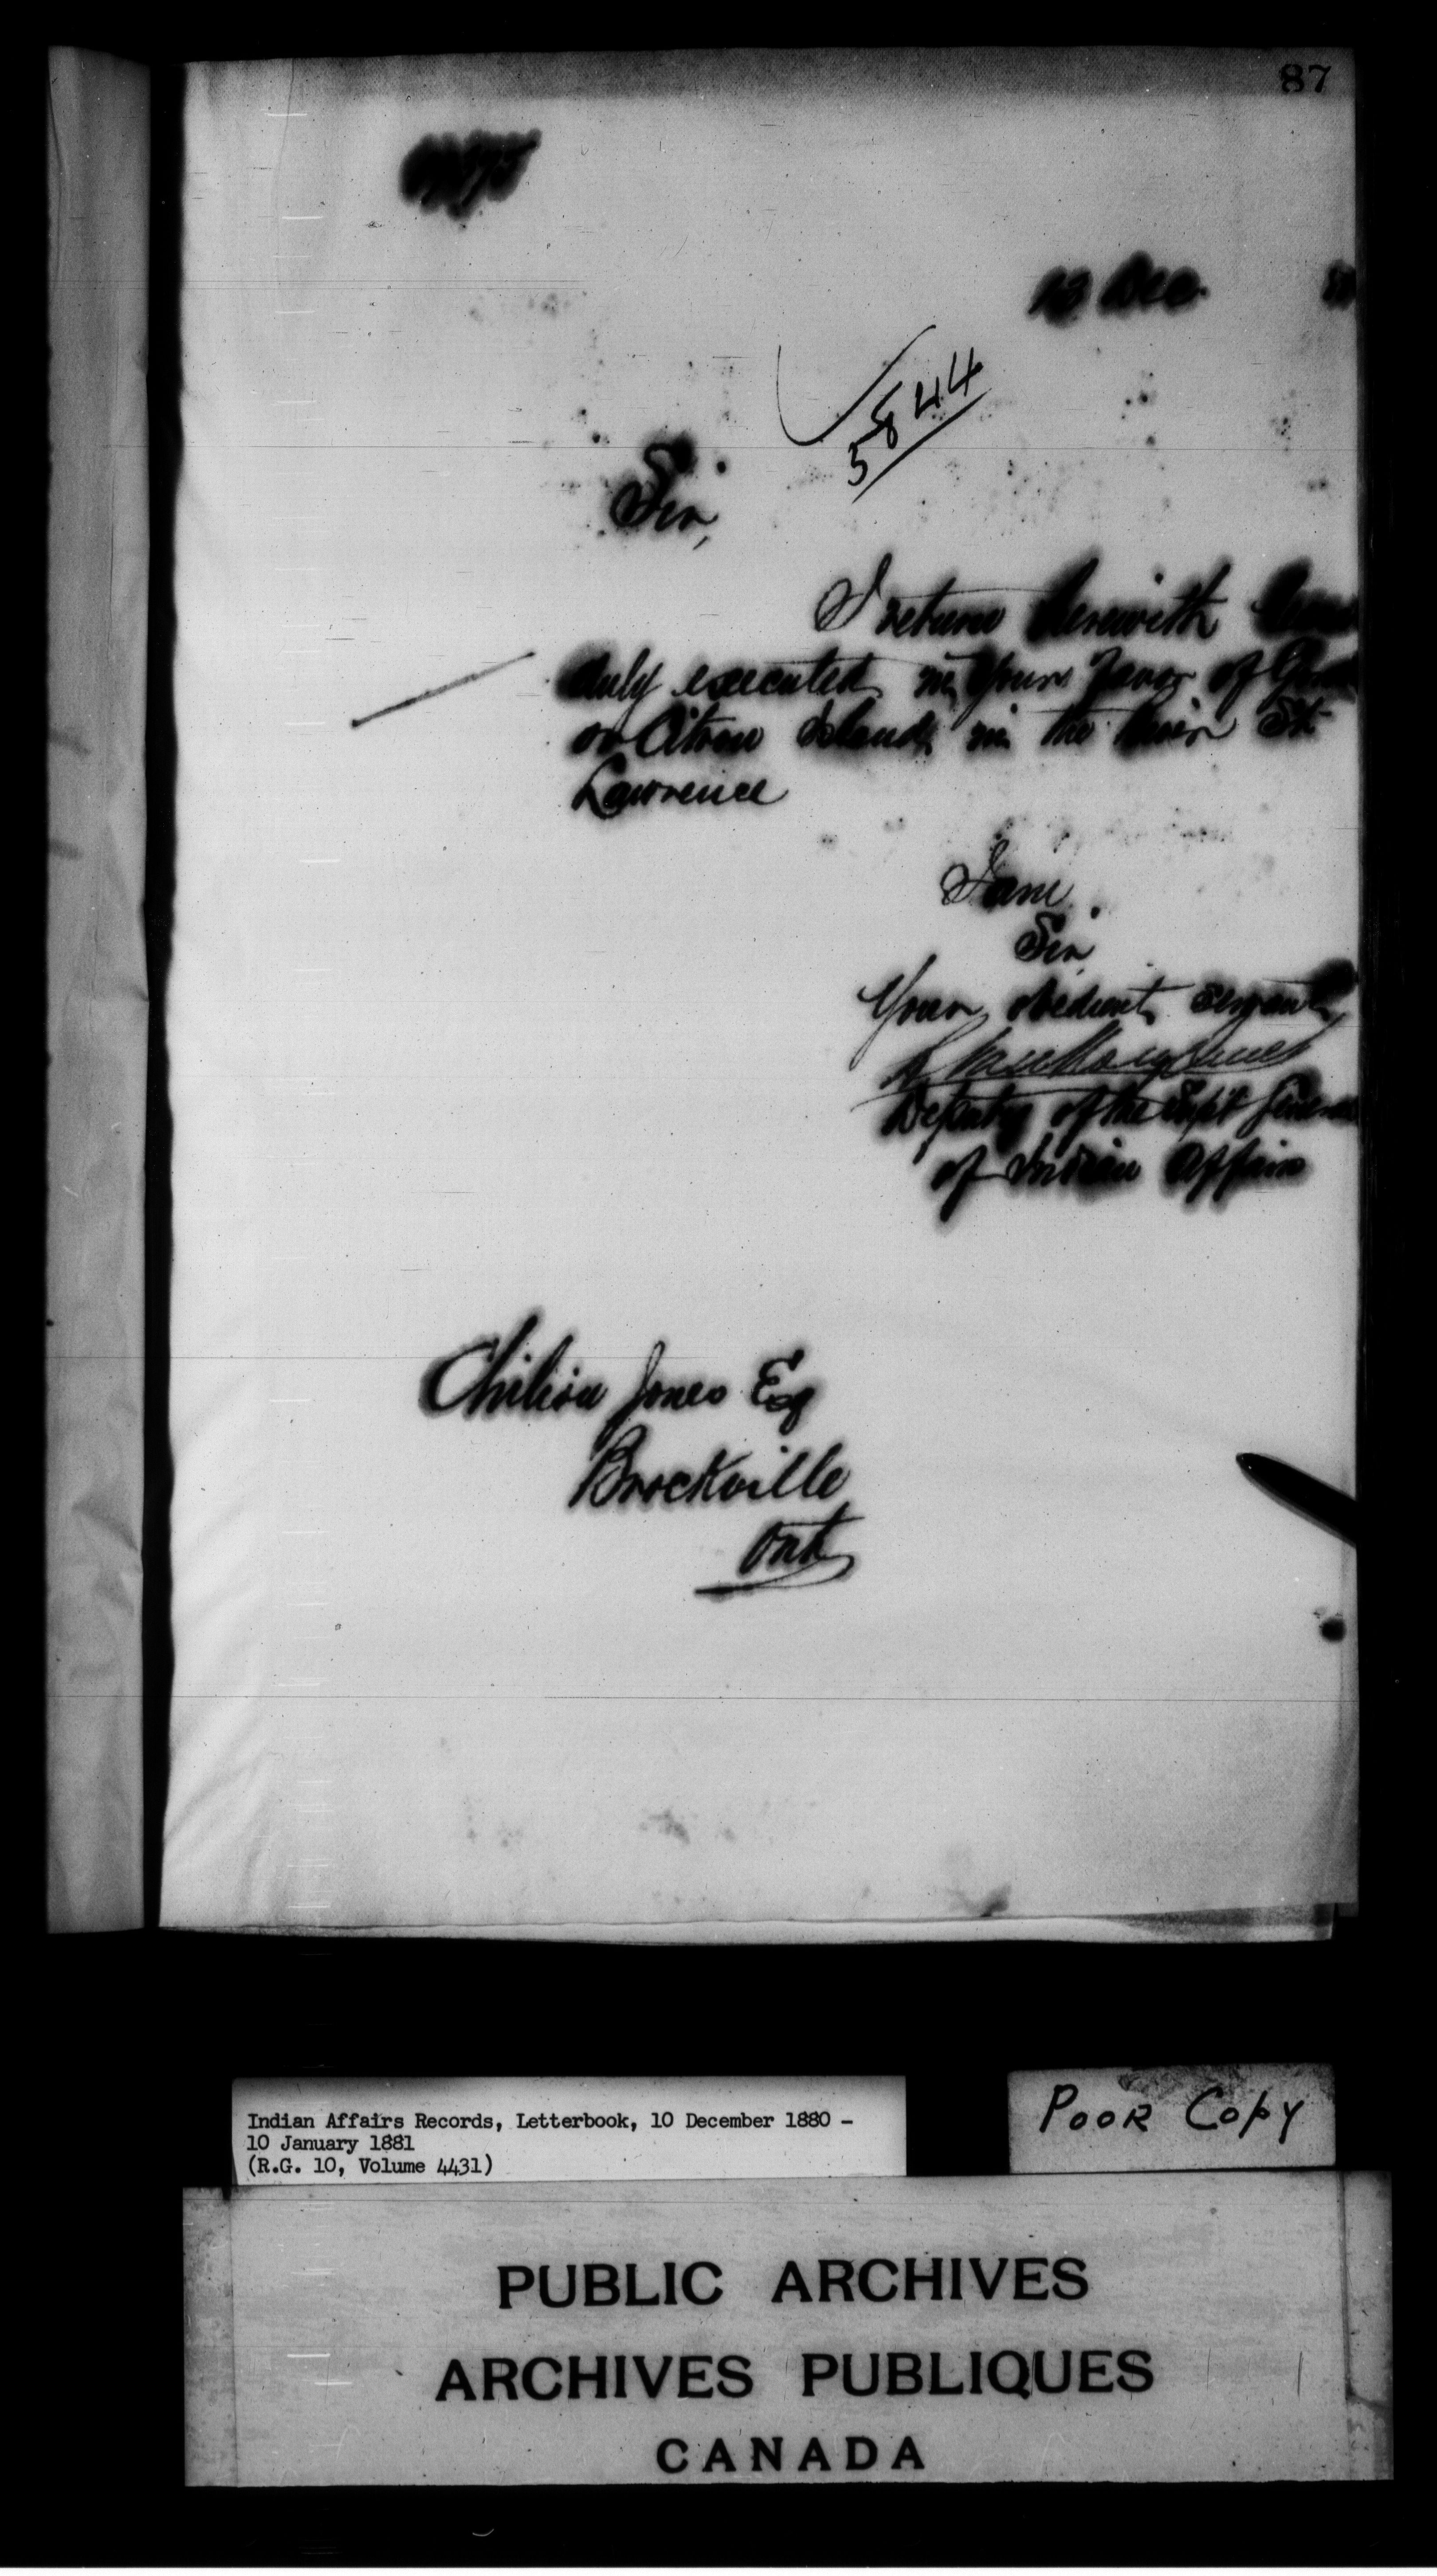 87
13 Dec.
5844
Sir,
I return herewith
duly executed in your favor of
or Citron Island, in the River St
Lawrence
I am
Sir
Your obedient servant,
L VanKoughnet
Deputy of the Supt General
of Indian Affairs
Chilion Jones Esq
Brockville
Ont
Indian Affairs Records, Letterbook, 10 December 1880 -
10 January 1881
(R.G. 10, Volume 4431)
POOR COPY
PUBLIC ARCHIVES
ARCHIVES PUBLIQUES
CANADA